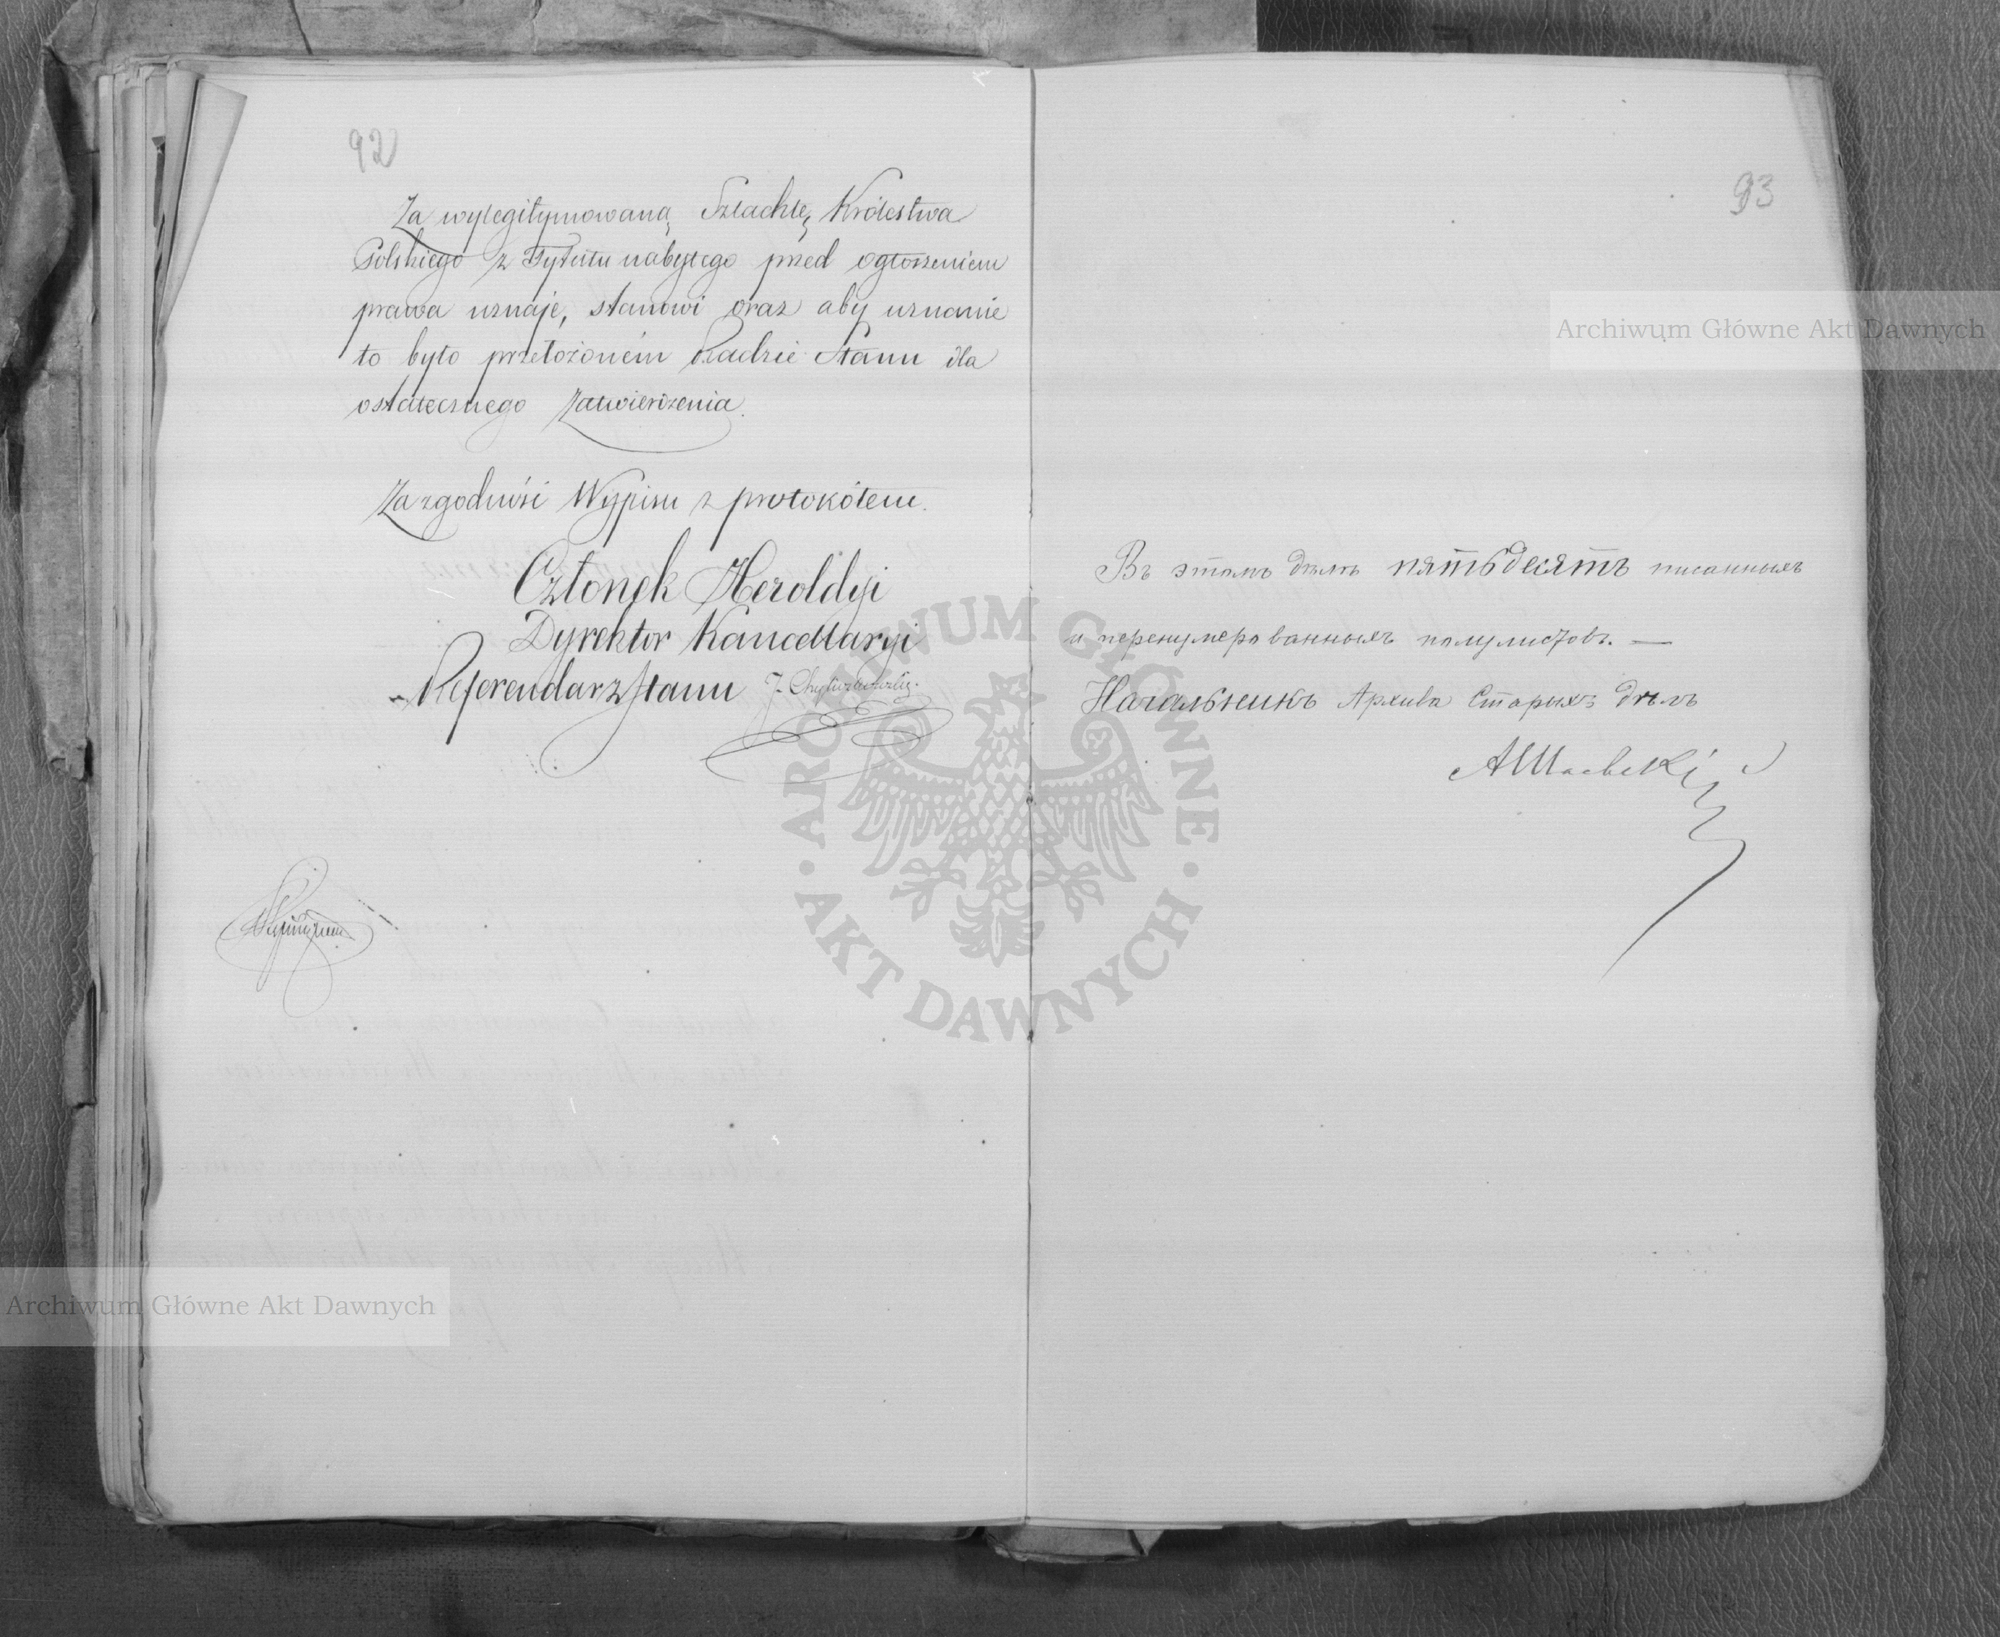 92
Za wylegitymowaną Szlachtę Królestwa
Polskiego z Tytułu nabytego przed ogłoszeniem
prawa uznaje, stanowi oraz aby uznanie
to było przełożoném Radzie Stanu dla
ostatecznego Zatwierdzenia.
Za zgodność Wypisu z protokółem.
Członek Heroldyi
Dyrektor Kancellaryi
Referendarz Stanu J.
93
Въ этомъ дѣлѣ пятьдесятъ писанныхъ
и перенумерованныхъ полулистовъ. —
Начальникъ Архива Старыхъ дѣлъ
Archiwum Główne Akt Dawnych
Archiwum Główne Akt Dawnych
ARCHIWUM GŁÓWNE · AKT DAWNYCH ·